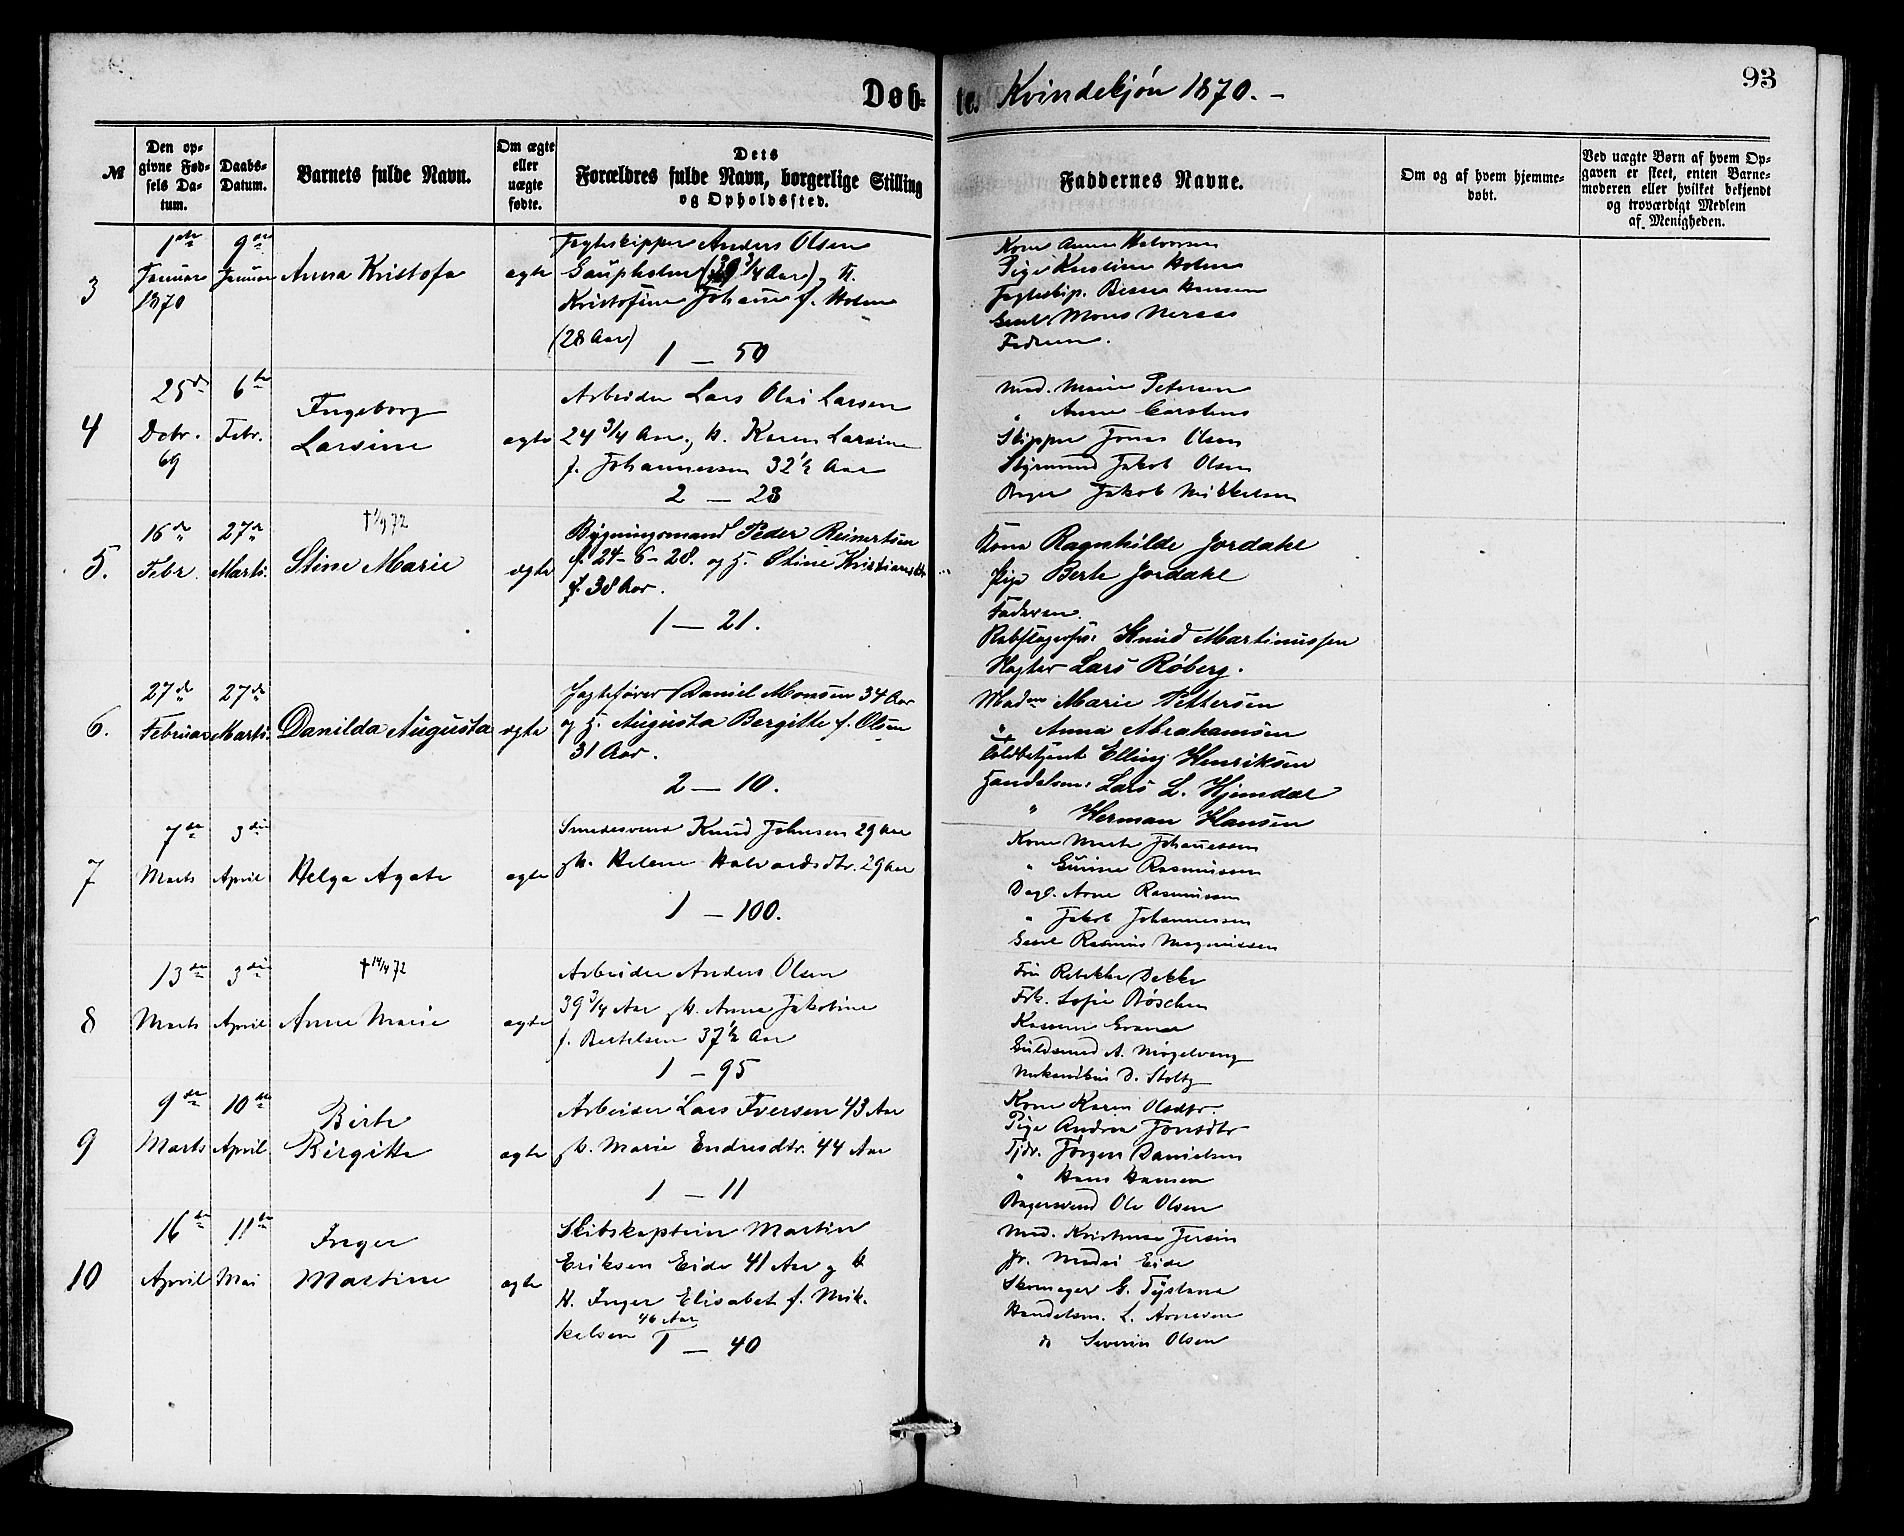 Døb-
te. Kvindekjön 1870. -
93
№
Den op-
givne Fød-
sels Da-
tum.
Daabs-
Datum.
Barnets fulde Navn.
Om ægte
eller
uægte
fødte.
Dets
Forældres fulde Navn, borgerlige Stilling
og Opholdssted.
Faddernes Navne.
Om og af hvem hjemme-
døbt.
Ved uægte Børn af hvem Op-
gaven er skeet, enten Barne-
moderen eller hvilket bekjendt
og troværdigt Medlem
af Menigheden.
3
1ste
Januar
1870
9de
Januar
Anna Kristofa
ægte
Jagteskipper Anders Olsen
Gaupholm (39 3/4 Aar) H.
Kristofine Johanne f. Holm
(28 Aar)
1 — 50
Kone Anne Halvorsen
Pige Kirstine Holm
Hansen
Mons
Faderen.
4
25de
Dcbr.
69
6te
Febr.
Ingeborg
Larsine
ægte
Arbeider Lars Olai Larsen
24 3/4 Aar, H. Karen Larsine
f. Johannessen 32 1/2 Aar
2 — 28
Mad. Marie Petersen
" Anne Carstens
Skipper Jonas Olsen
Styrmand Jakob Olsen
Bager Jakob Mikkelsen
5.
16de
Febr.
27de
Marts.
† 1/9 72
Stine Marie
ægte
Bygningsmand Peder Reinertsen
f. 24-6-28. og H. Stine Kristiansdtr
f. 38 Aar.
1 — 21.
Kone Ragnhilde Jordahl
Pige Berte Jordahl
Faderen
Rebslagersv: Knud Martinussen
Slagter Lars Röberg.
6.
27de
Februar
27de
Marts.
Danilda Augusta
ægte
Jagtefører Daniel Monsen 34 Aar
og H. Augusta Bergitte f. Olsen
31 Aar.
2 — 10.
Madme Marie Pettersen
" Anna Abrahamsen
Toldbetjent Elling Henriksen
Handelsm: Lars L. Hjemdal
" Herman Hansen
7
7de
Marts
3die
April
Helga Agate
ægte
Smedesvend Knud Johnsen 29 Aar
H. Helene Halvardsdtr. 29 Aar
1 — 100.
Kone Marte Johannessen
" Gurine Rasmussen
Dagl. Arne Rasmussen
" Jakob Johannessen
Rasmus Magnussen
8
13de
Marts
3die
April
† 14/4 72
Anne Marie
ægte
Arbeider Anders Olsen
39 3/4 Aar H. Anne Jakobine
f. Bertelsen 37 1/2 Aar
1 — 95
Fru Rebekka Dekke
Frk. Sofie Böschen
Guldsmed A. Mögelvang
Mekanikus D. Stoltz
9
9de
Marts
10de
April
Birte
Birgitte
ægte
Arbeider Lars Iversen 43 Aar
H. Marie Endresdtr. 44 Aar
1 — 11
Kone Karen Olsdtr.
Pige Andrea Jonsdtr
Tjdr. Jørgen Danielsen
" Hans Hansen
Bagersvend Ole Olsen
10
16de
April
11te
Mai
Inger
Martine
ægte
Skibskaptein Martin
Eriksen Eide 41 Aar
H. Inger Elisabet f. Mik-
kelsen 46 Aar
1 — 40
Mad.
Eide
Skomager G.
Handelsm. L. Arnesen
do Severin Olsen